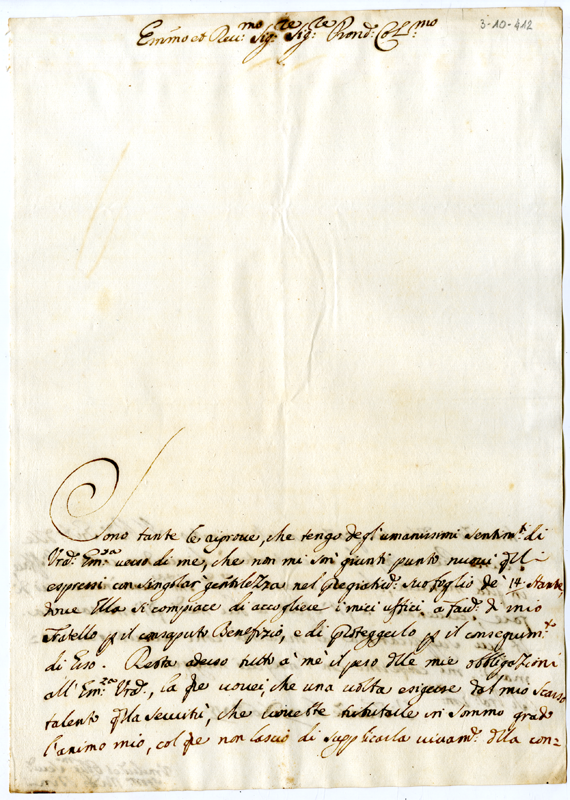 3-10-412
Em̃mo et Rev:mo Sig:re Sig:re Pron: Col:mo
Sono tante le riprove, che tengo degl'umanissimi sentim:ti di
Vrã Em:za verso di me, che non mi son giunti punto nuovi q̃lli
espressi con singolar gentilezza nel pregiatis:o suo foglio de' 14 stante,
dove Ella si compiace di accogliere i miei uffici a fav:e di mio
Fratello p il consaputo Benefizio, e di proteggerlo p il conseguim:to
di Eso. Resta adesso tutto à me il peso dlle mie obbligazioni
all'Em:za Vrã, la q̃le vorrei, che una volta esigesse dal mio scarso
talento q̃lla servitù, che vorrebbe tributarle in sommo grado
l'animo mio, col q̃le non lascio di supplicarla vivam:te dlla con=